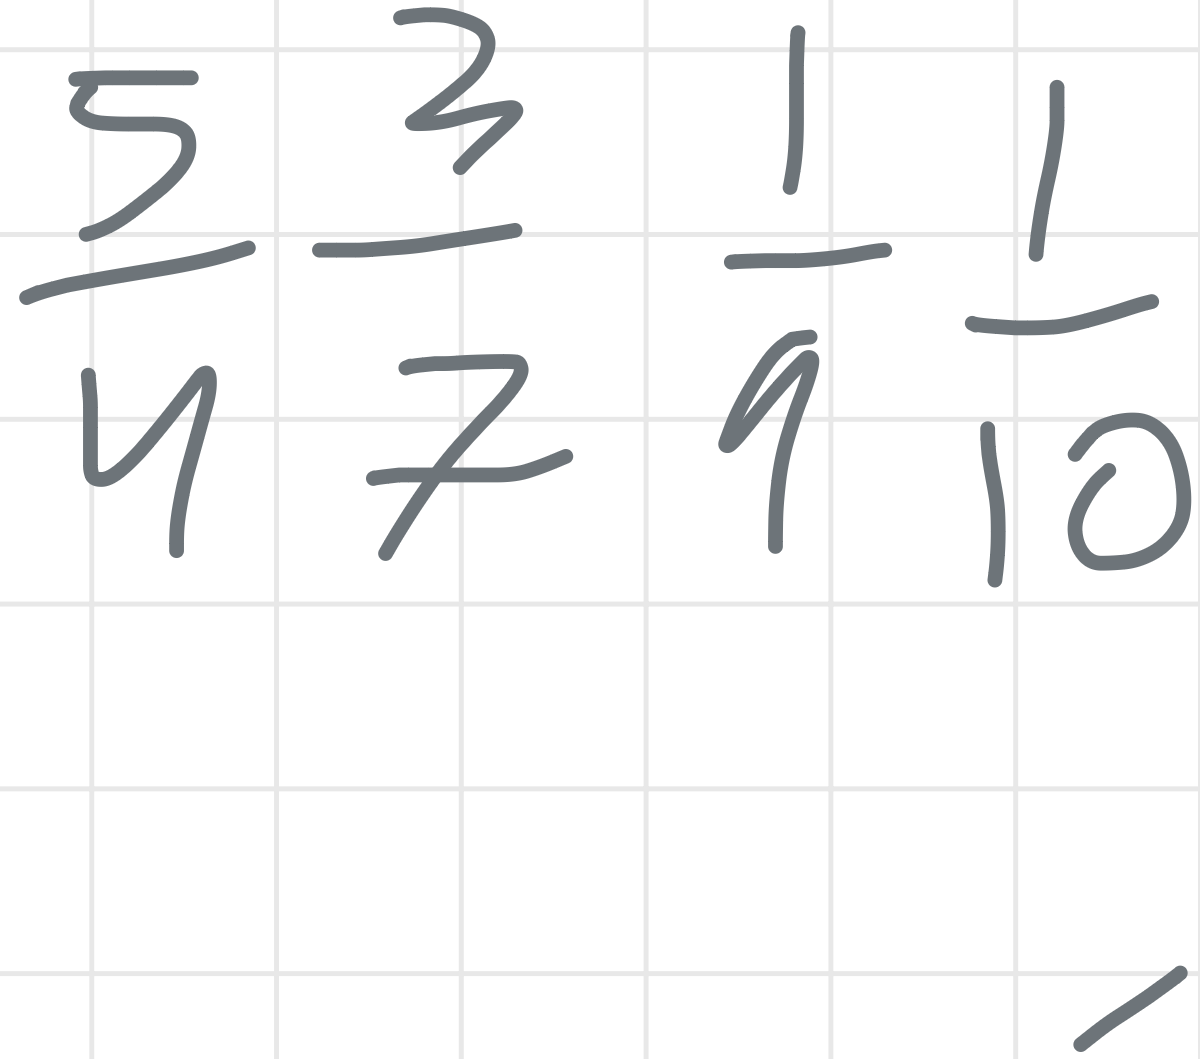 5/4 3/7 1/9 1/10